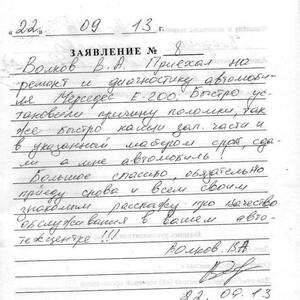 "22" 09 13 г.
ЗАЯВЛЕНИЕ № 8
Волков В.А. Приехал на
ремонт и диагностику автомоби-
ля Мерседес Е-200. Быстро ус-
тановили причину поломки, так
же быстро нашли зап. части и
в указанный мастером срок сда-
ли а мне автомобиль!
Большое спасибо, обязательно
приеду снова и всем своим
знакомым расскажу про качество
обслуживания в вашем авто-
техцентре!!!
Волков ВА
22.09.13